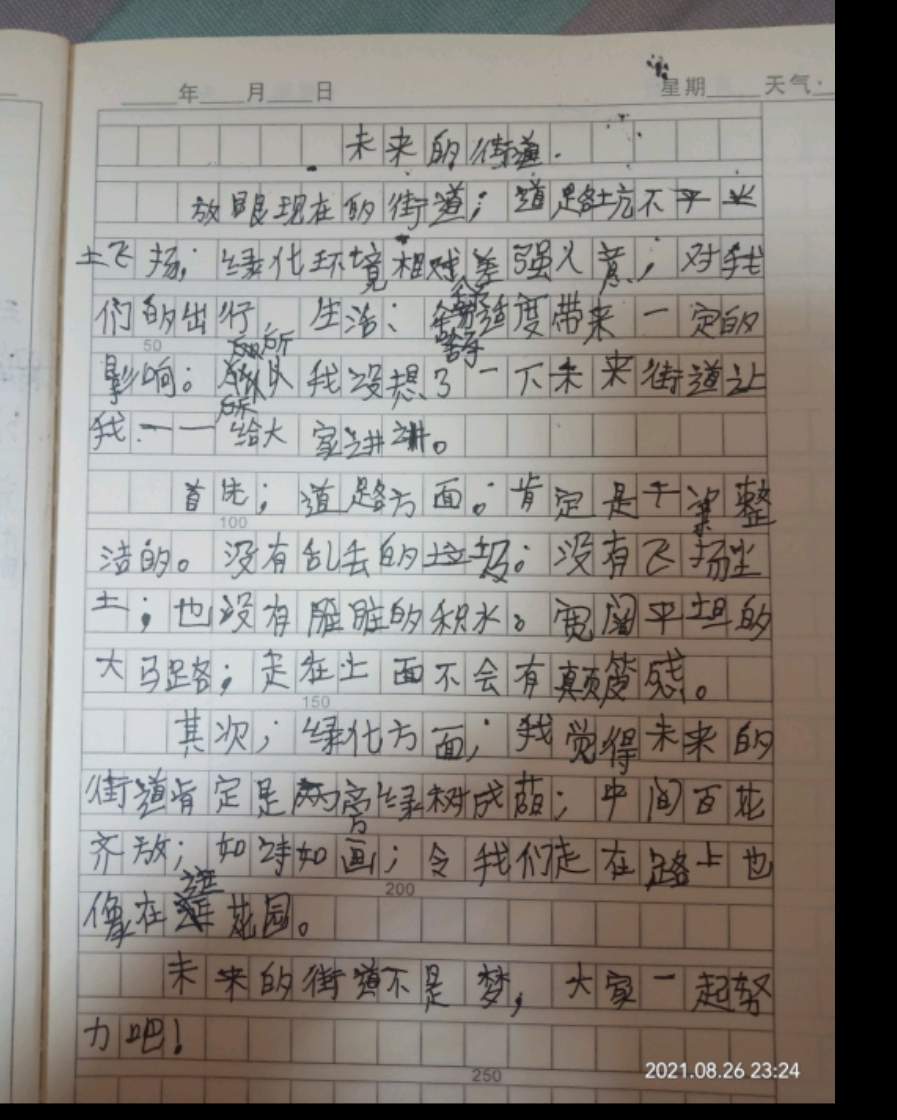 年 月 日 星期 天气:
未来的街道.
放眼现在的街道；道路坑不平 尘
土飞扬；绿化环境相对差强人意；对我
们的出行 生活、舒适度带来一定的
50
影响。所以我设想了一下未来街道让
我一一给大家讲讲。
首先；道路方面。肯定是干 整
100
洁的。没有乱丢的垃圾；没有飞扬尘
土；也没有脏脏的积水。宽阔平坦的
大马路；走在上面不会有颠簸感。
150
其次；绿化方面；我觉得未来的
街道肯定是两旁绿树成荫；中间百花
齐放；如诗如画；令我们走在路上也
200
像在逛花园。
未来的街道不是梦，大家一起努
力吧！
250
2021.08.26 23:24